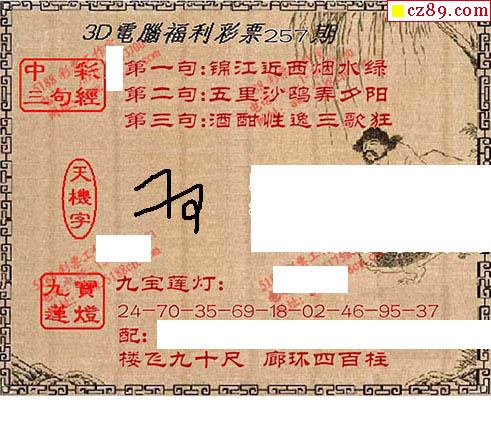 cz89.com
3D電腦福利彩票257期
中彩三句經
第一句:锦江近西烟水绿
第二句:五里沙鸥弄夕阳
第三句:酒酣性逸三歌狂
天機字
九寶蓮燈
九宝莲灯:
24-70-35-69-18-02-46-95-37
配:
楼飞九十尺 廊环四百柱